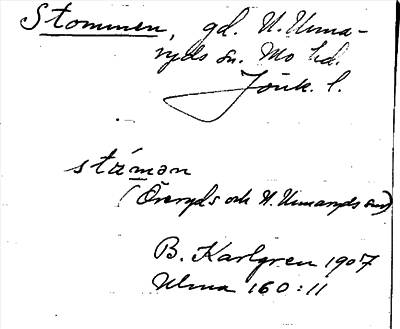 Stommen, gd. N. Unna-
ryds sn. Mo hd.
Jönk. l.
ståmən
(Öreryds och N. Unnaryds snr)
B. Karlgren 1907
Ulma 160:11